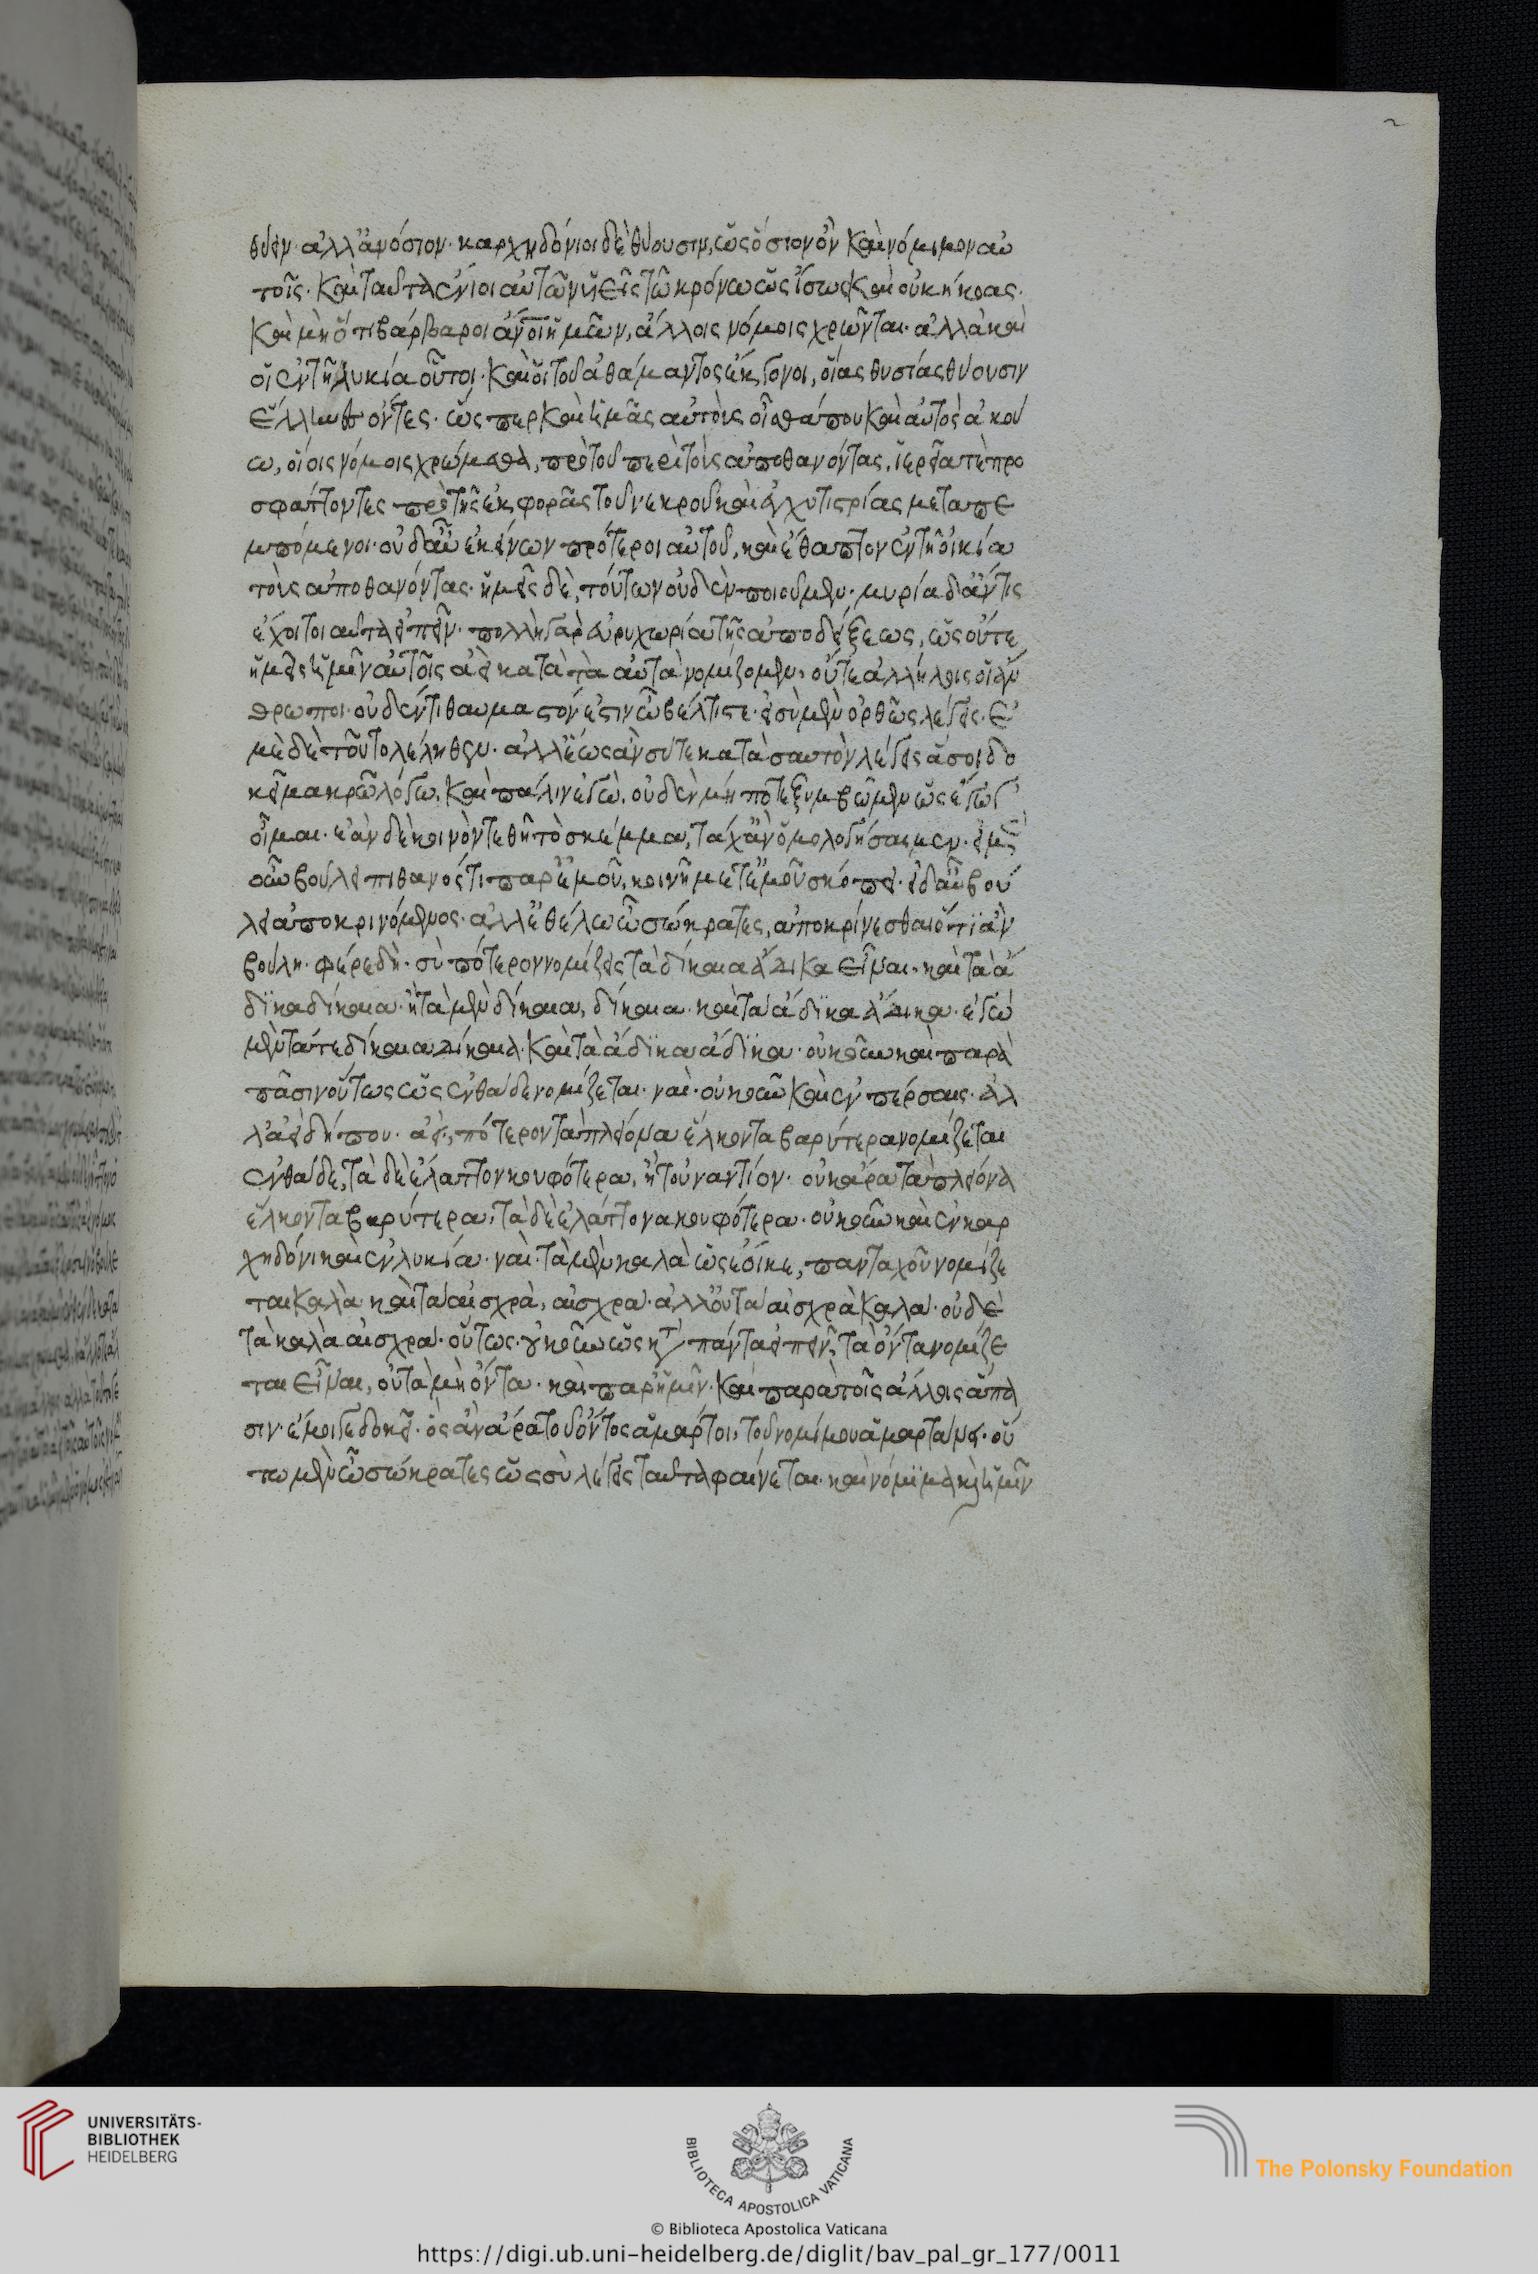 θύειν· ἀλλ' ἀνόσιον· καρχηδόνιοι δὲ θύουσιν, ὡς ὅσιον ὂν καὶ νόμιμον αὐ
τοῖς· καὶ ταῦτα ἔνιοι αὐτῶν υἱεῖς τῶ κρόνω ὡς ἴσως καὶ σὺ ἀκήκοας·
καὶ μὴ ὅτι βάρβαροι ἄνοι ἡμῶν, ἄλλοις νόμοις χρῶνται· ἀλλὰ καὶ
οἱ ἐν τῆ λυκία οὗτοι· καὶ οἱ τοῦ ἀθάμαντος ἔκγονοι, οἵας θυσίας θύουσιν
ἕλληνες ὄντες· ὥσπερ καὶ ἡμᾶς αὐτοὺς οἶσθά που καὶ αὐτὸς ἀκού
ω, οἵοις νόμοις χρώμεθα, πρὸ τοῦ περὶ τοὺς ἀποθανόντας, ἱερεῖά τε προ
σφάττοντες πρὸ τῆς ἐκφορᾶς τοῦ νεκροῦ καὶ ἐγχυτιστρίας μεταπε
μπόμενοι· οἱ δ' αὖ ἐκείνων πρότεροι αὐτοῦ, καὶ ἔθαπτον ἐν τῆ οἰκία
τοὺς ἀποθανόντας· ἡμεῖς δὲ, τούτων οὐδὲν ποιοῦμεν· μυρία δ' ἄν τις
ἔχοι τοιαῦτα εἰπεῖν· πολλὴ γὰρ εὐρυχωρία τῆς ἀποδείξεως, ὡς οὔτε
ἡμεῖς ἡμῖν αὐτοῖς ἀεὶ κατὰ τὰ αὐτὰ νομίζομεν, οὔτε ἀλλήλοις οἱ ἄν
θρωποι· οὐδέν τι θαυμαστόν ἐστιν ὦ βέλτιστε· εἰ σὺ μὲν ὀρθῶς λέγεις· ἐ
μὲ δὲ τοῦτο λέληθεν· ἀλλ' ἕως ἂν σύ τε κατὰ σαυτὸν λέγεις ἅ σοι δο
κεῖ μακρῶ λόγω, καὶ πάλιν ἐγὼ, οὐδὲν μή ποτε ξυμβῶμεν ὡς ἐγὼ
οἶμαι· ἐὰν δὲ κοινὸν τεθῆ τὸ σκέμμα, τάχ' ἂν ὁμολογήσαιμεν· εἰ μὲν
οὖν βούλει πυθανός τι παρ' ἐμοῦ, κοινῆ μετ' ἐμοῦ σκόπει· εἰ δ' αὖ βού
λει ἀποκρινόμενος· ἀλλ' ἐθέλω ὦ σώκρατες, ἀποκρίνεσθαι ὅτι ἂν
βούλη· φέρε δὴ· σὺ πότερον νομίζεις τὰ δίκαια ἄδικα εἶναι· καὶ τὰ ἄ
δικα δίκαια· ἢ τὰ μὲν δίκαια, δίκαια· καὶ τὰ ἄδικα ἄδικα· ἐγὼ
μὲν τά τε δίκαια δίκαια· καὶ τὰ ἄδικα ἄδικα· οὐκοῦν καὶ παρὰ
πᾶσιν οὕτως ὡς ἐνθάδε νομίζεται· ναὶ· οὐκοῦν καὶ ἐν πέρσαις· ἀλ
λὰ ἀεὶ δήπου· ἀεὶ, πότερον τὰ πλεῖονα ἕλκοντα βαρύτερα νομίζεται
ἐνθάδε, τὰ δὲ ἔλαττον κουφότερα, ἢ τοὐναντίον· οὐκ ἄρα τὰ πλείονα
ἕλκοντα βαρύτερα, τὰ δὲ ἐλάττονα κουφότερα· οὐκοῦν καὶ ἐν καρ
χηδόνι καὶ ἐν λυκία· ναὶ· τὰ μὲν καλὰ ὡς ἔοικε, πανταχοῦ νομίζε
ται καλὰ καὶ τὰ αἰσχρὰ, αἰσχρά· ἀλλ' οὐ τὰ αἰσχρὰ καλά· οὐδὲ
τὰ καλὰ αἰσχρά· οὕτως· οὐκοῦν ὡς κατὰ πάντα εἰπεῖν, τὰ ὄντα νομίζε
ται εἶναι, οὐ τὰ μὴ ὄντα· καὶ παρ' ἡμῖν· καὶ παρὰ τοῖς ἄλλοις ἅπα
σιν· ἔμοιγε δοκεῖ· ὃς ἂν ἄρα τοῦ ὄντος ἁμάρτοι, τοῦ νομίμου ἁμαρτάνει· οὕ
τω μὲν ὦ σώκρατες ὡς σὺ λέγεις ταῦτα φαίνεται· καὶ νόμιμα καὶ ἡμῖν
UNIVERSITÄTS-
BIBLIOTHEK
HEIDELBERG
BIBLIOTECA APOSTOLICA VATICANA
The Polonsky Foundation
© Biblioteca Apostolica Vaticana
https://digi.ub.uni-heidelberg.de/diglit/bav_pal_gr_177/0011